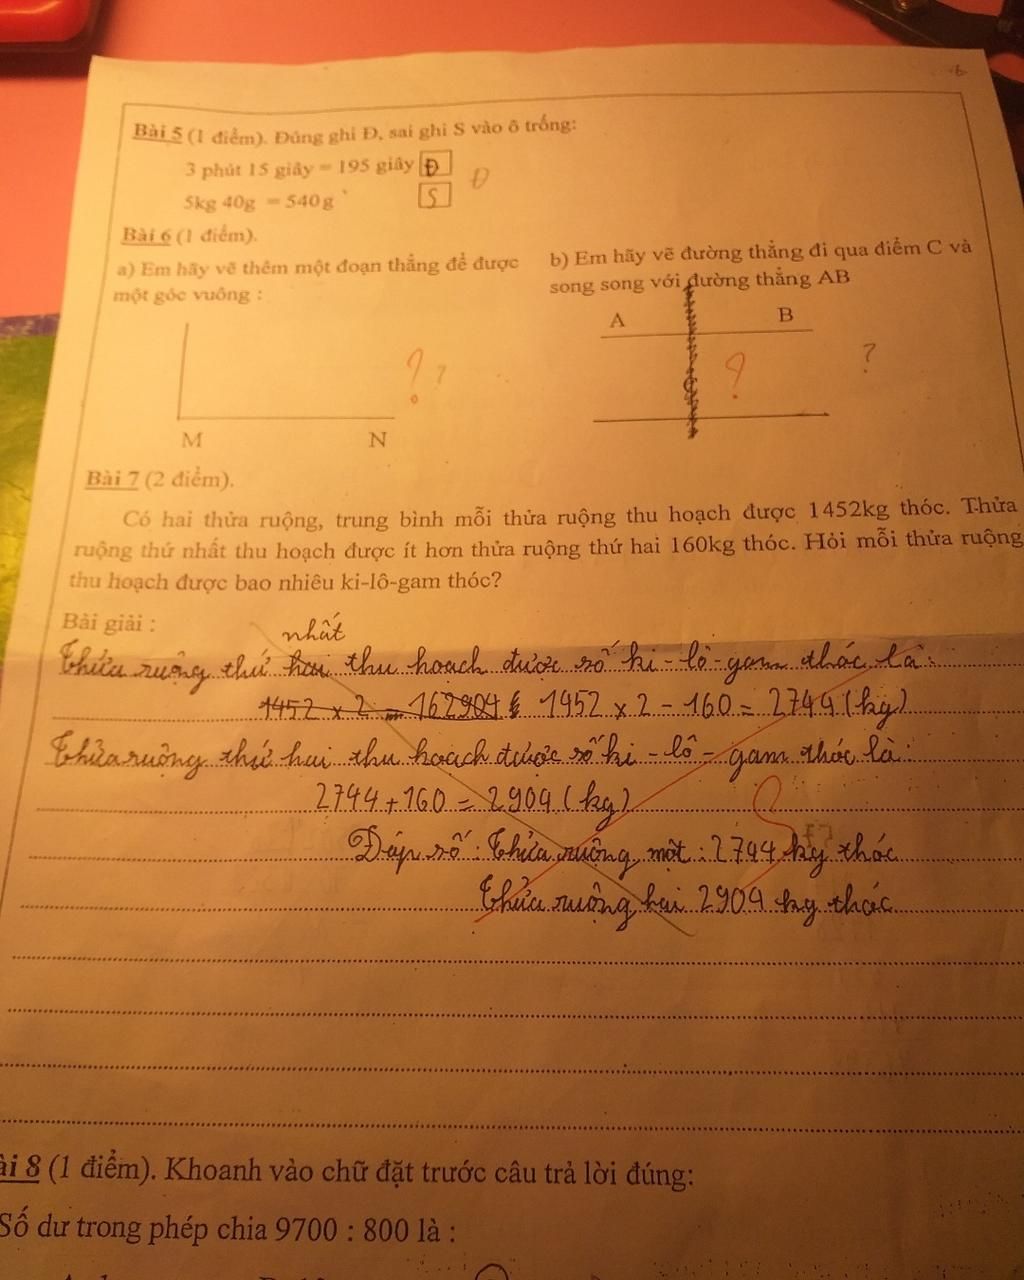 Bài 5 (1 điểm). Đúng ghi Đ, sai ghi S vào ô trống:
3 phút 15 giây = 195 giây Đ Đ
5kg 40g = 540g S
Bài 6 (1 điểm).
a) Em hãy vẽ thêm một đoạn thẳng để được
một góc vuông :
b) Em hãy vẽ đường thẳng đi qua điểm C và
song song với đường thẳng AB
A B
? ? ? ?
C
M N
Bài 7 (2 điểm).
Có hai thửa ruộng, trung bình mỗi thửa ruộng thu hoạch được 1452kg thóc. Thửa
ruộng thứ nhất thu hoạch được ít hơn thửa ruộng thứ hai 160kg thóc. Hỏi mỗi thửa ruộng
thu hoạch được bao nhiêu ki-lô-gam thóc?
Bài giải :
nhất
Thửa ruộng thứ hai thu hoạch được số ki-lô-gam thóc là:
1452 x 2 - 160 = 2744 (kg)
Thửa ruộng thứ hai thu hoạch được số ki-lô-gam thóc là:
2744 + 160 = 2904 (kg)
Đáp số: Thửa ruộng một: 2744 kg thóc
Thửa ruộng hai 2904 kg thóc
ài 8 (1 điểm). Khoanh vào chữ đặt trước câu trả lời đúng:
Số dư trong phép chia 9700 : 800 là :